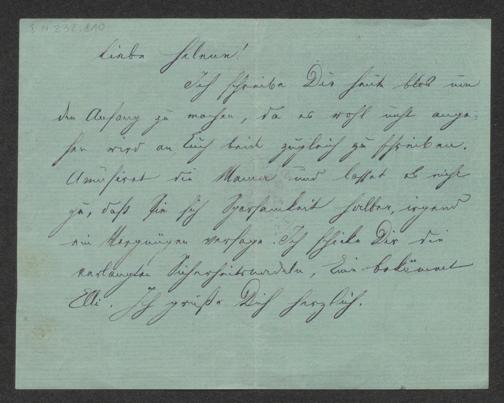 I N 232.810
Liebe Helene!
Ich schreibe Dir heute blos um
den Anfang zu machen, da es wohl nicht ange-
hen wird an Euch beide zugleich zu schreiben.
Amüsiret die Mama und lasset es nicht
zu, daß sie sich Sparsamkeit halber, irgend
ein Vergnügen versage. Ich schicke Dir die
verlangten Sicherheitsnadeln, Eine bekömmt
Elli. Ich grüße Dich herzlich.